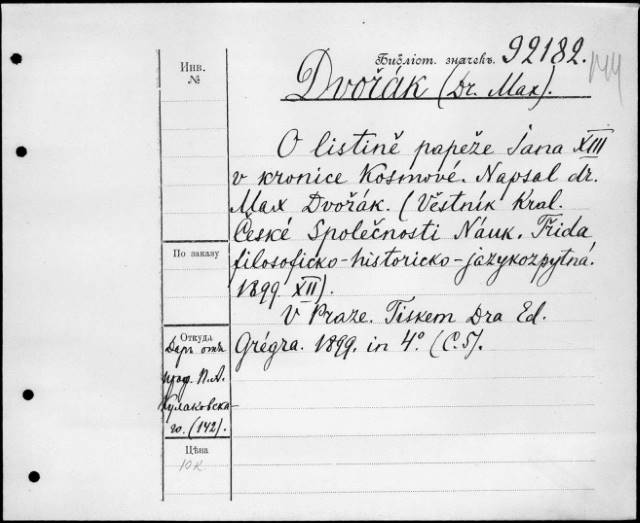 Инв.
№
Библіот. значекъ. 92182.
Dvořák (Dr. Max).
O listině papeže Jana XIII
v kronice Kosmově. Napsal dr.
Max Dvořák. (Věstník Král.
České Společnosti Náuk. Třída
filosoficko-historicko-jazykozpytná.
1899. XII).
V Praze. Tiskem Dra Ed.
Grégra. 1899. in 4º (C. 5).
По заказу
Откуда
Даръ отъ
проф. П. А.
Кулаковска-
го. (142).
Цѣна
10 к